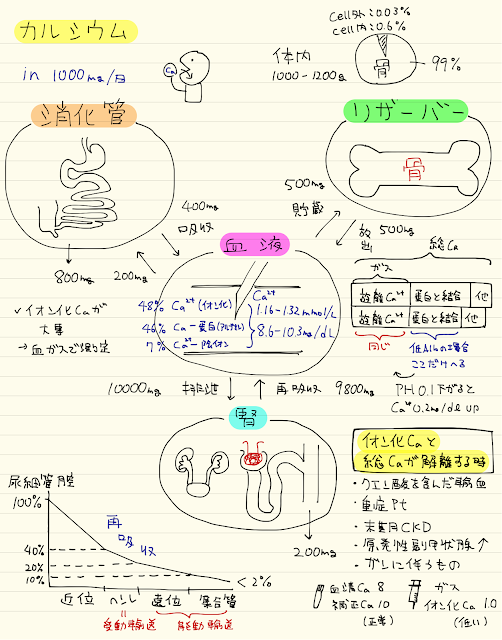 カルシウム
in 1000mg/日
Ca
体内
1000-1200g
cell外:0.03%
cell内:0.6%
骨
99%
消化管
リザーバー
骨
400mg
吸収
500mg
貯蔵
血液
放出
500mg
総Ca
800mg
200mg
✓イオン化Caが
大事
→血ガスで測定
48% Ca²⁺(イオン化)
46% Ca-蛋白(アルブミン)
7% Ca²⁺-陰イオン
Ca²⁺
1.16-1.32mmol/L
8.6-10.3mg/dL
ガス
遊離Ca²⁺ 蛋白と結合 他
遊離Ca²⁺ 蛋白と結合 他
同じ
低Albの場合
ここだけへる
PH 0.1下がると
Ca²⁺ 0.2mg/dL up
10000mg 排泄
再吸収 9800mg
腎
200mg
イオン化Caと
総Caが解離する時
・クエン酸を含んだ輸血
・重症Pt
・末期CKD
・原発性副甲状腺↑
・ガンに伴うもの
血清Ca 8
補正Ca 10
(正常)
ガス
イオン化Ca 1.0
(低い)
尿細管腔
100%
40%
20%
10%
再吸収
<2%
近位 ヘンレ 遠位 集合管
=受動輸送
=能動輸送